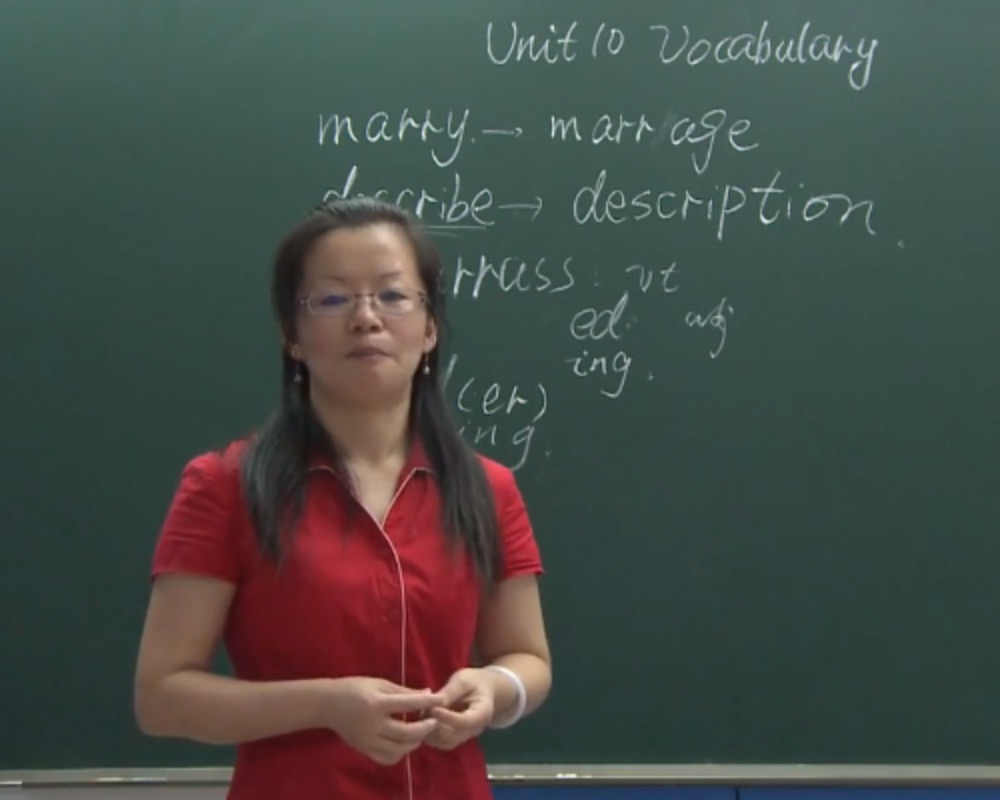 Unit 10 Vocabulary
marry. → marr age
describe → description.
rrass: vt
ed. adj
ing.
(er)
ing.